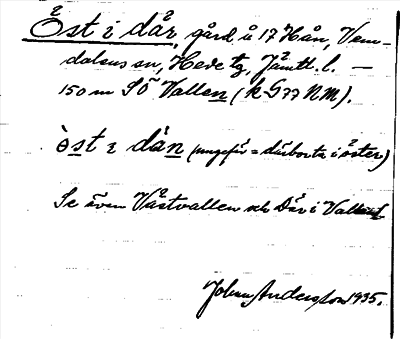 Öst i där, gård å 17 Hån, Vem-
dalens sn, Hede tg, Jämtl. l. —
150 m SÖ Vallen (k G77 NM).
öst i dän (ungefär = därborta i öster)
Se även Västvallen och Där i Vallen
Johan Andersson 1935.